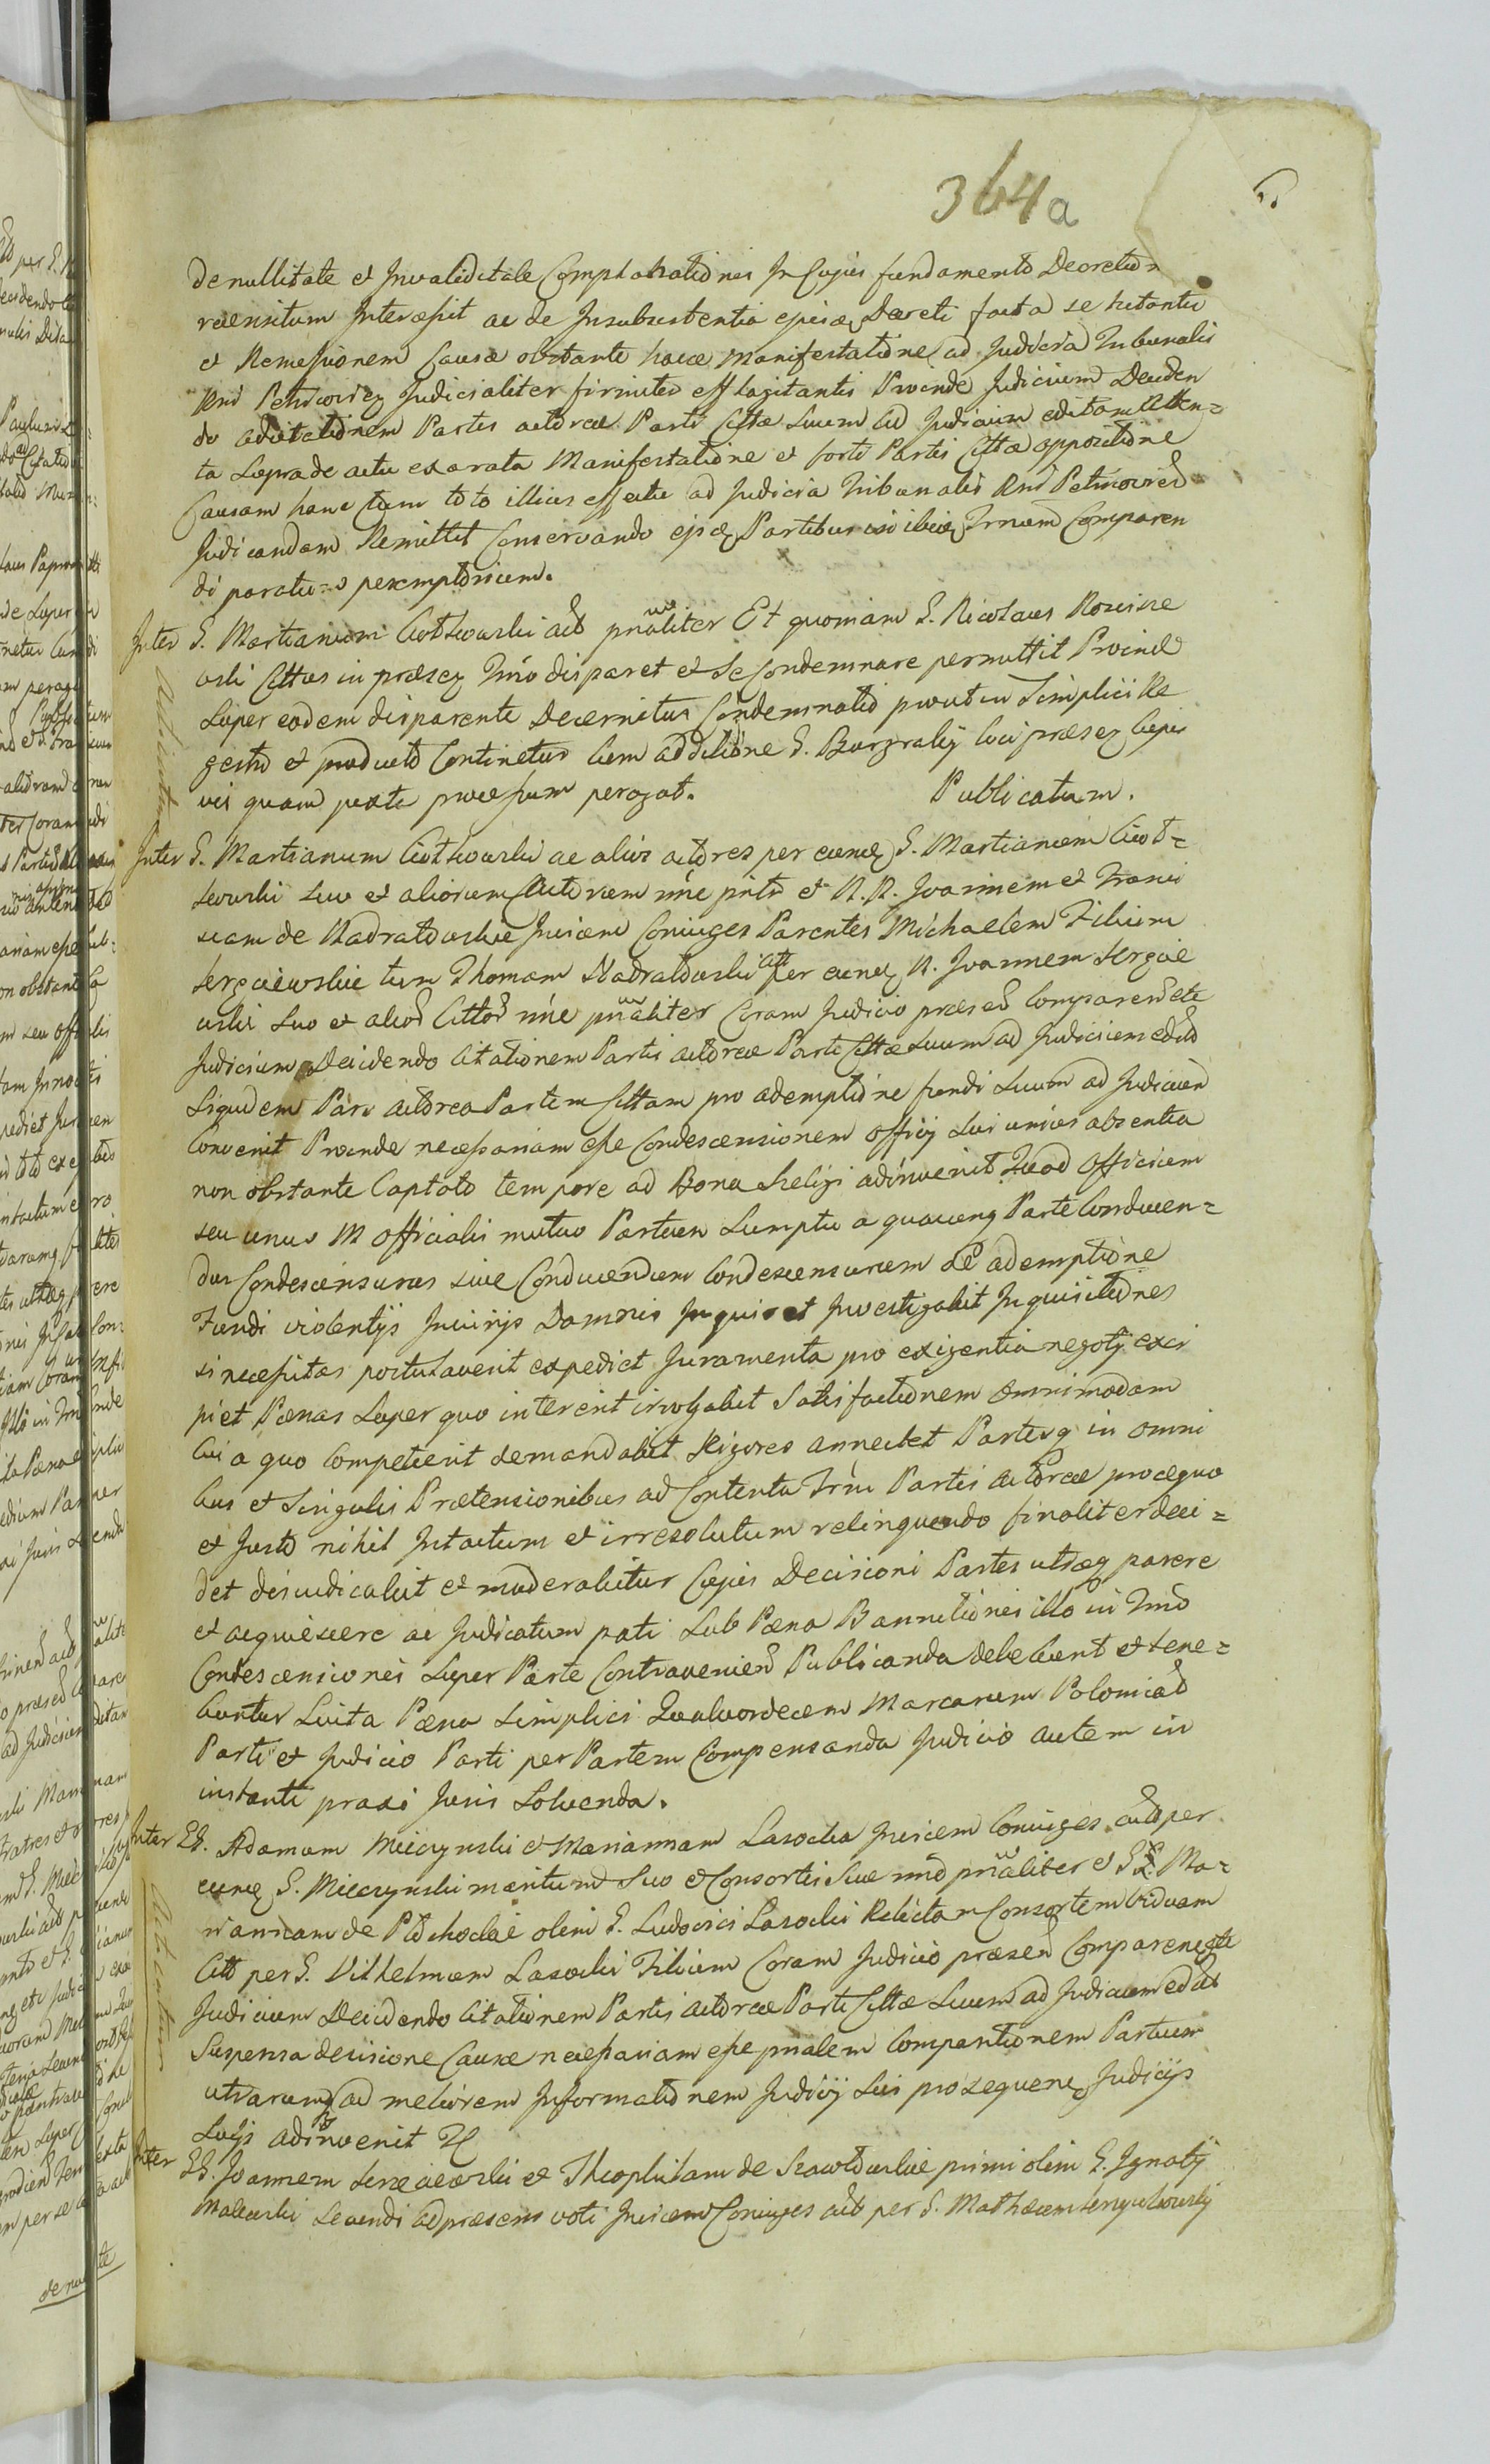 364a
de nullitate et Invaliditate Comparationis In Cujus fundamento Decretum
recensitum Intercessit ac de Insubsistentia ejusq Decreti facta se hitantis
et Remissionem Causæ obstante hacce Manifestatione ad Judicia Tribunalis
Rni Petricovien Judicialiter firmiter efflagitantis Proinde Judicium Deciden
do Citationem Partis actoreæ Parti Cittæ Suum ad Judicium editam Atten=
ta Supra de actu exarata Manifestatione et forti Partis Cittæ oppositione
Causam hanc Cum toto illius effectu ad Judicia Tribunalis Rni Petricovien
Judicandam Remittit Conservando ejsq Partibus ibiq Trnum Comparen
di paratu=o peremptorium.
Inter G. Martianum Cwotkowski act pnaliter Et quoniam G. Nicolaus Rowinse
wski Cittus in præseq Tmo disparet et Se Condemnare permittit Proinde
Super eodem disparente Decernitur Condemnatio prout in Simplici Re
gestro et producto Continetur Cum additione G. Burgraby loci præseq Cujus
vis quam juxta processum peragat. Publicatum.
Inter G. Martianum Cwotkowski ac alios actores per eunq G. Martianum Cwot=
kowski Suo et aliorum Actorum nne pntr et N.N. Joannem et Franci
scam de Nadratowskie Invicem Coniuges Parentes Michaelem Filium
Sergiewskie tum Thomam Nadratowski citt per eunq N. Joannem Sergie
wski Suo et alior Cittor nne pnaliter Coram Judicio præsen Comparen etc
Judicium Decidendo Citationem Partis actoreæ Parti Cittæ Suum ad Judicium edito
Siquidem Pars actorea Partem Cittam pro ademptione fundi Suum ad Judicium
Convenit Proinde necessariam esse Condescensionem officij Sui unius absentia
non obstante Captato tempore ad Bona Szeligi adinvenit Quod Officium
seu unus M officialis mutuo Partium Sumptu a quacunq Parte Conducen=
dus Condescensurus sive Conducendum Condescensurum de ademptione
Fundi violentijs Injurijs Damnis Inquiret Investigabit Inquisitiones
si necessitas postulaverit expediet Juramenta pro exigentia negotij exci
piet Pænas Super quo intererit irrogabit Satisfactionem omnimodam
Cui a quo Competierit demandabit Rigores annectet Partesq in omni
bus et Singulis Prætensionibus ad Contenta Trni Partis actoreæ pro æquo
et Justo nihil Intactum et irresolutum relinquendo finaliter deci=
det dejudicabit et moderabitur Cujus Decisioni Partes utræq parere
et acquiescere ac Judicatum pati Sub Pæna Bannitionis illo in Tmo
Condescensionis Super Parte Contravenien Publicanda debebunt et tene=
buntur Luita Pæna Simplici Quatuordecem Marcarum Polonical
Parti et Judicio Parti per Partem Compensanda Judicio autem in
instanti praxi Juris Solvenda.
Inter GG. Adamum Mieczynski et Mariannam Lasocka Invicem Coniuges act per
eunq G. Mieczynski maritum Suo et Consortis Suæ nno pnaliter et G. Ma=
riannam de Plochockie olim G. Ludovici Lasocki Relictam Consortem Viduam
Citt per G. Vilhelmum Lasocki Filium Coram Judicio præsen Comparen etc
Judicium Decidendo Citationem Partis actoreæ Parti Cittæ Suum ad Judicium edit
Suspensa decisione Causæ necessariam esse pnalem Comparitionem Partium
utrarumq ad meliorem Informationem Judicij Sui pro sequenq Judicijs
Suijs adinvenit
Inter GG. Joannem Sergiewski et Theophilam de primi olim G. Ignatij
Malewski Secundi ad præsens voti Invicem Coniuges act per G. Mathæum